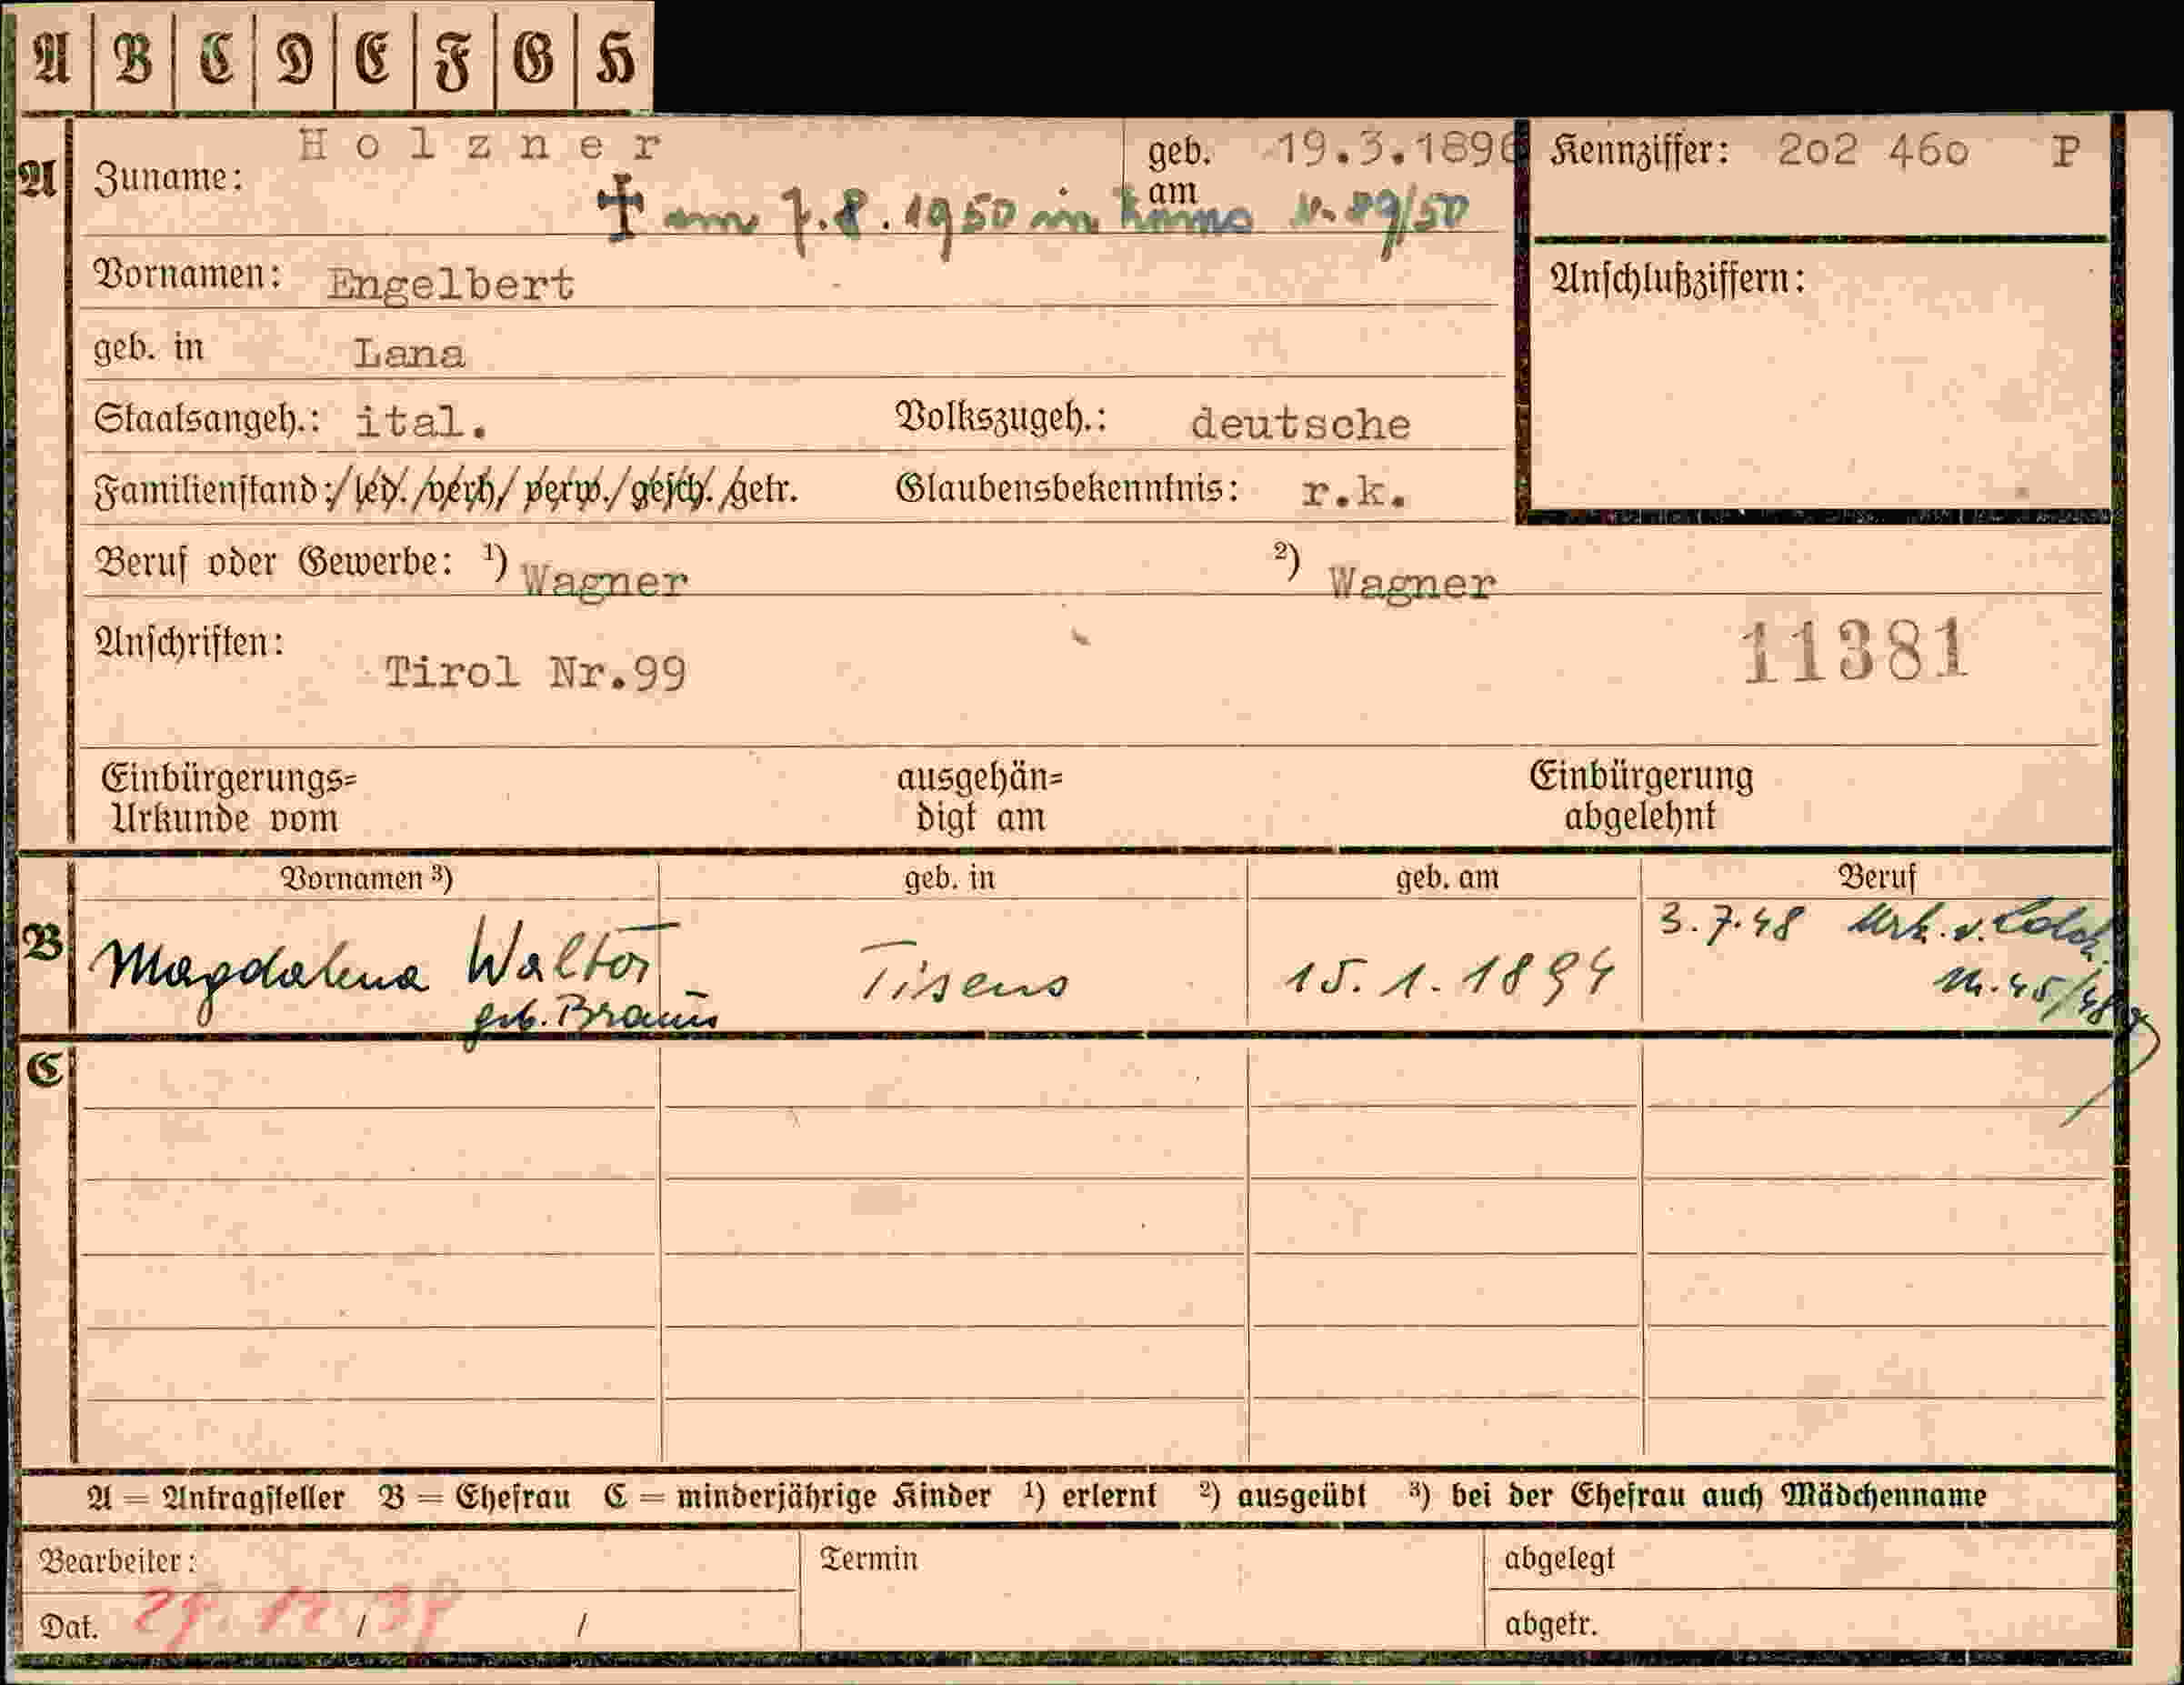 A B C D E F G H
A
Zuname: Holzner
geb. am 19.3.1896
Kennziffer: 202 460 P
✝ am 7.8.1950 in 89/50
Vornamen: Engelbert
Anschlußziffern:
geb. in Lana
Staatsangeh.: ital. Volkszugeh.: deutsche
Familienstand: led./verh/verw./gesch./getr. Glaubensbekenntnis: r.k.
Beruf oder Gewerbe: ¹) Wagner ²) Wagner
Anschriften: Tirol Nr.99
11381
Einbürgerungs=
Urkunde vom
ausgehän=
digt am
Einbürgerung
abgelehnt
Vornamen ³) geb. in geb. am Beruf
B
Magdalena Tisens 15.1.1894
3.7.48 Urk. v.
45/48
geb.
C
A = Antragsteller B = Ehefrau C = minderjährige Kinder ¹) erlernt ²) ausgeübt ³) bei der Ehefrau auch Mädchenname
Bearbeiter: Termin abgelegt
Dat. 29. 12 / 39 / abgetr.